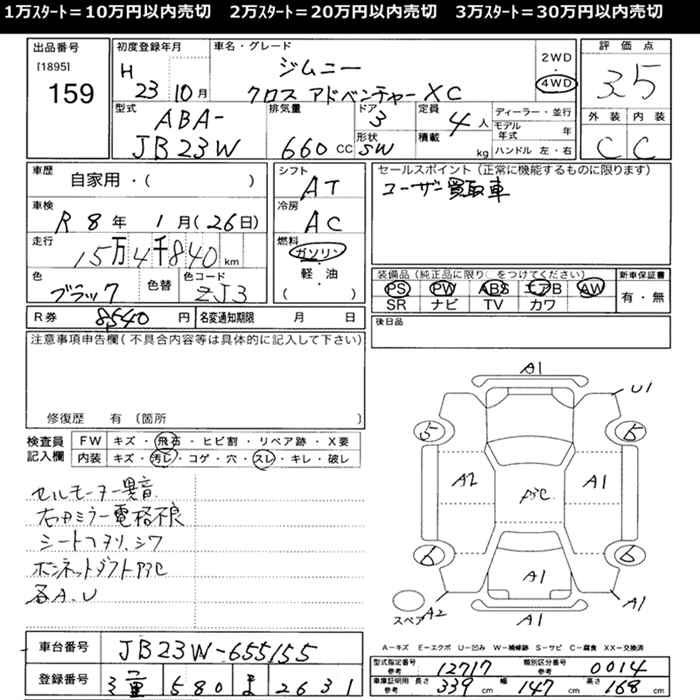 1万スタート＝10万円以内売切　2万スタート＝20万円以内売切　3万スタート＝30万円以内売切
出品番号
[1895]
159
初度登録年月
H 23 10 月
車名・グレード
ジムニー
クロス アドベンチャー XC
2WD
4WD
評価点
3.5
外装 内装
C C
型式
ABA-
JB23W
排気量
660 CC
ドア
3
形状
SW
定員
4 人
積載
kg
ディーラー・並行
モデル年式 年
ハンドル 左・右
車歴
自家用・( )
車検
R 8 年 1 月 (26 日)
走行
15万4千840 km
色
ブラック
色替
色コード
ZJ3
シフト
AT
冷房
AC
燃料
ガソリン
軽・油
( )
セールスポイント (正常に機能するものに限ります)
ユーザー買取車
装備品 (純正品に限り○をつけてください)
PS PW ABS エアB AW
SR ナビ TV カワ
新車保証書
有・無
R券 8540 円 名変通知期限 月 日
後日品
注意事項申告欄 (不具合内容等は具体的に記入して下さい)
修復歴 有 (箇所 )
検査員
記入欄
FW キズ・飛石・ヒビ割・リペア跡・X要
内装 キズ・汚レ・コゲ・穴・スレ・キレ・破レ
セルモーター異音
右カミラー電格不良
シートヘタリ、シワ
ボンネットダクトPﾌﾞC
各A.U
A1
U1
5 5
A2 A1
PﾌﾞC
6 6
A1
スペア
A2 A1
A1
A－キズ E－エクボ U－凹み W－補修跡 S－サビ C－腐食 XX－交換済
車台番号 JB23W-655155
登録番号 580 2631
型式指定番号 参考 12717
類別区分番号 参考 0014
車庫証明用 参考 長さ 339 cm 幅 147 cm 高さ 168 cm